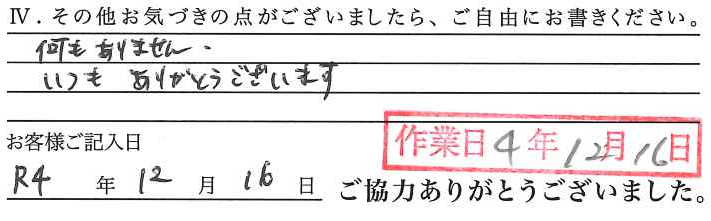 Ⅳ．その他お気づきの点がございましたら、ご自由にお書きください。
何もありません．
いつも ありがとうございます
お客様ご記入日
作業日 4年12月16日
R4 年 12 月 16 日
ご協力ありがとうございました。